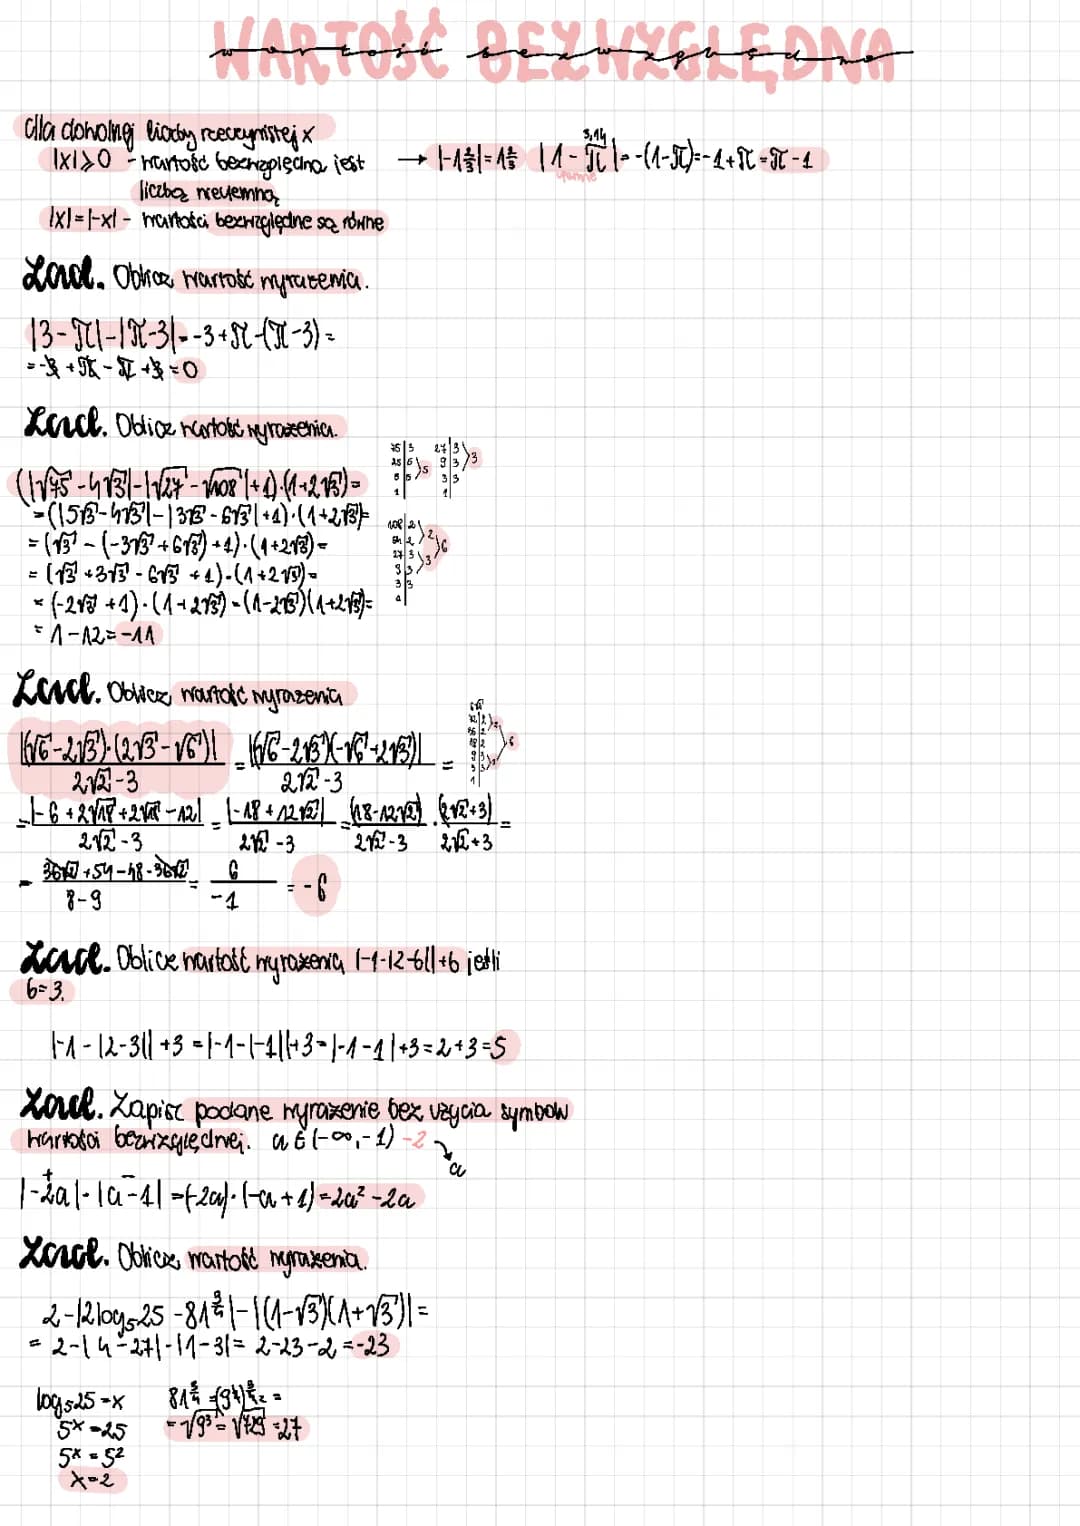 WARTOŚĆ BEZWZGLĘDNA
wartość bezwzględna
dla dowolnej liczby rzeczywistej x
|x| ⩾ 0 - wartość bezwzględna jest
liczbą nieujemną
|x|=|-x| - wartości bezwzględne są równe
→ |-1⅔|=1⅔ |1-π|=-(1-π)=-1+π=π-1
3,14
ujemne
Zad. Oblicz wartość wyrażenia.
|3-π|-|π-3|=-3+π-(π-3)=
=-3+π-π+3=0
Zad. Oblicz wartość wyrażenia.
(|√75-4√3|-|√27-√108|+1)·(1+2√3)=
=(|5√3-4√3|-|3√3-6√3|+1)·(1+2√3)=
=(√3-(-3√3+6√3)+1)·(1+2√3)=
=(√3+3√3-6√3+1)·(1+2√3)=
=(-2√3+1)·(1+2√3)=(1-2√3)(1+2√3)=
=1-12=-11
75|3
25|5
5|5
1|
>5
27|3
9|3
3|3
1|
>3
108|2
54|2
27|3
9|3
3|3
1|
>2
>3
>6
Zad. Oblicz wartość wyrażenia
|(√6-2√3)·(2√3-√6)|/(2√2-3) = |(√6-2√3)(-√6+2√3)|/(2√2-3) =
=|-6+2√18+2√18-12|/(2√2-3) = |-18+12√2|/(2√2-3) = (18-12√2)/(2√2-3) · (2√2+3)/(2√2+3) =
= (36√2+54-48-36√2)/(8-9) = 6/-1 = -6
Zad. Oblicz wartość wyrażenia |-1-|2-b||+b jeśli
b=3.
|-1-|2-3||+3=|-1-|-1||+3=|-1-1|+3=2+3=5
Zad. Zapisz podane wyrażenie bez użycia symbolu
wartości bezwzględnej. a∈(-∞,-1) -2
a
|-2a|·|a-1|=(-2a)·(-a+1)=2a²-2a
Zad. Oblicz wartość wyrażenia.
2-|2log₅25-81^(3/4)|-|(1-√3)(1+√3)|=
= 2-|4-27|-|1-3|= 2-23-2=-23
log₅25=x
5ˣ=25
5ˣ=5²
x=2
=√9³=√729=27